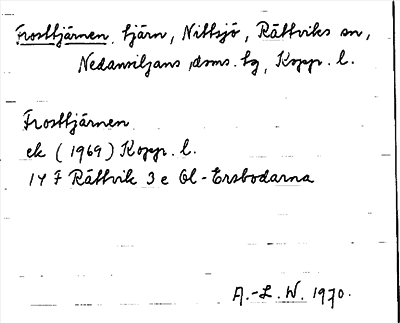 Frosttjärnen. tjärn, Nittsjö, Rättviks sn,
Nedansiljans doms. tg, Kopp. l.
Frosttjärnen
ek (1969) Kopp. l.
14 F Rättvik 3 e Ol-Ersbodarna
A.-L. W. 1970.